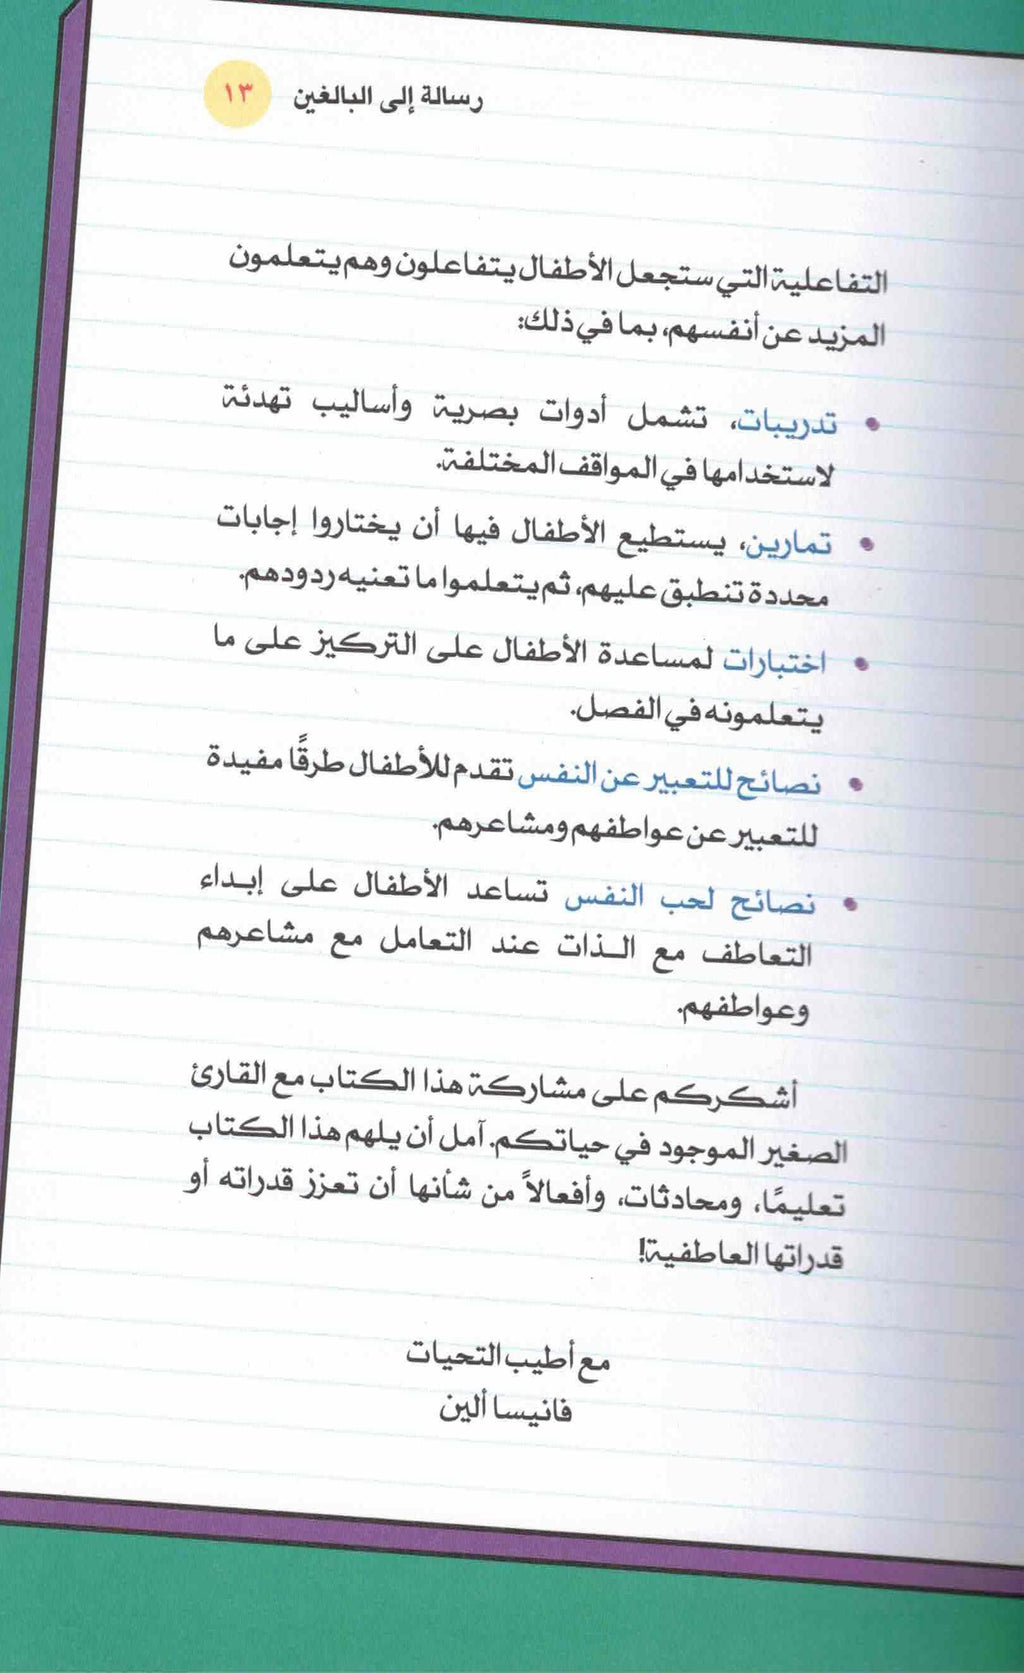 رسالة إلى البالغين ١٣
التفاعلية التي ستجعل الأطفال يتفاعلون وهم يتعلمون
المزيد عن أنفسهم، بما في ذلك:
• تدريبات، تشمل أدوات بصرية وأساليب تهدئة
لاستخدامها في المواقف المختلفة.
• تمارين، يستطيع الأطفال فيها أن يختاروا إجابات
محددة تنطبق عليهم، ثم يتعلموا ما تعنيه ردودهم.
• اختبارات لمساعدة الأطفال على التركيز على ما
يتعلمونه في الفصل.
• نصائح للتعبير عن النفس تقدم للأطفال طرقًا مفيدة
للتعبير عن عواطفهم ومشاعرهم.
• نصائح لحب النفس تساعد الأطفال على إبداء
التعاطف مع الذات عند التعامل مع مشاعرهم
وعواطفهم.
أشكركم على مشاركة هذا الكتاب مع القارئ
الصغير الموجود في حياتكم. آمل أن يلهم هذا الكتاب
تعليمًا، ومحادثات، وأفعالاً من شأنها أن تعزز قدراته أو
قدراتها العاطفية!
مع أطيب التحيات
فانيسا ألين